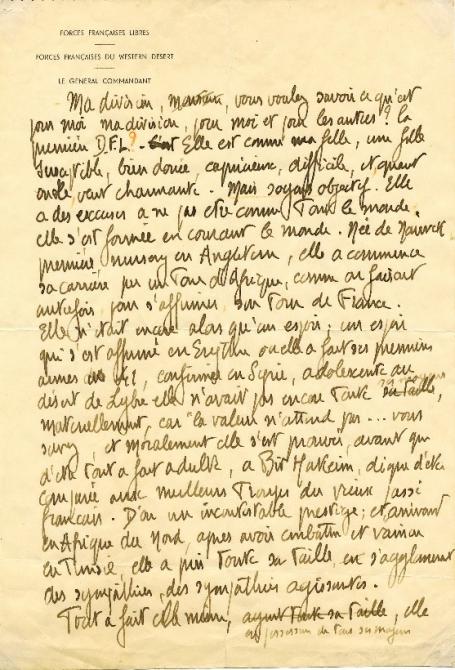 FORCES FRANÇAISES LIBRES
FORCES FRANÇAISES DU WESTERN DESERT
LE GENERAL COMMANDANT
Ma division, monsieur, vous voulez savoir ce qu'est
pour moi ma division, pour moi et pour les autres? la
première D.F.L? - Elle est comme ma fille, une fille
susceptible, bien douée, capricieuse, difficile, et quand
elle veut charmante. Mais soyons objectif. Elle
a des excuses a ne pas etre comme Tout le monde,
elle s'est formée en courant le monde. Née de
première nursery en Angleterre, elle a commencé
sa carrière par un Tour d'Afrique, comme on faisait
autrefois, pour s'affirmer, son Tour de France.
Elle n'était encore alors qu'un espoir; un espoir
qui s'est affirmé en Erythrée ou elle a fait ses premières
armes et, confirmée en Syrie, adolescente au
désert de Lybie elle n'avait pas encore toute sa Taille,
materiellement, car "la valeur n'attend pas ... vous
savez, et moralement elle s'est prouvée, avant que
d'etre tout a fait adulte, a Bir Hakeim, digne d'etre
comparée aux meilleurs Troupes du vieux passé
français. D'ou un incontestable prestige; et arrivant
en Afrique du Nord, apres avoir combattu et vaincu
en Tunisie, elle a pris Toute sa Taille, en s'agglomerant
des sympathies, des sympathies agissantes.
Tout a fait elle meme, ayant Toute sa Taille, elle
en possession de tous ses moyens